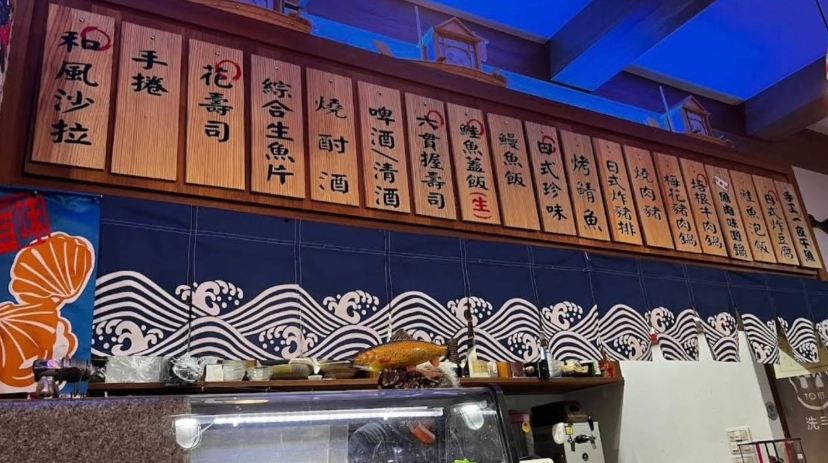 和風沙拉
手捲
花壽司
綜合生魚片
燒酎酒
啤酒/清酒
六貫握壽司
鮭魚蓋飯(生)
鰻魚飯
日式珍味
烤鯖魚
日式炸豬排
燒肉豬
梅花豬肉鍋
培根牛肉鍋
鮭魚泡飯
日式炸豆腐
洗手